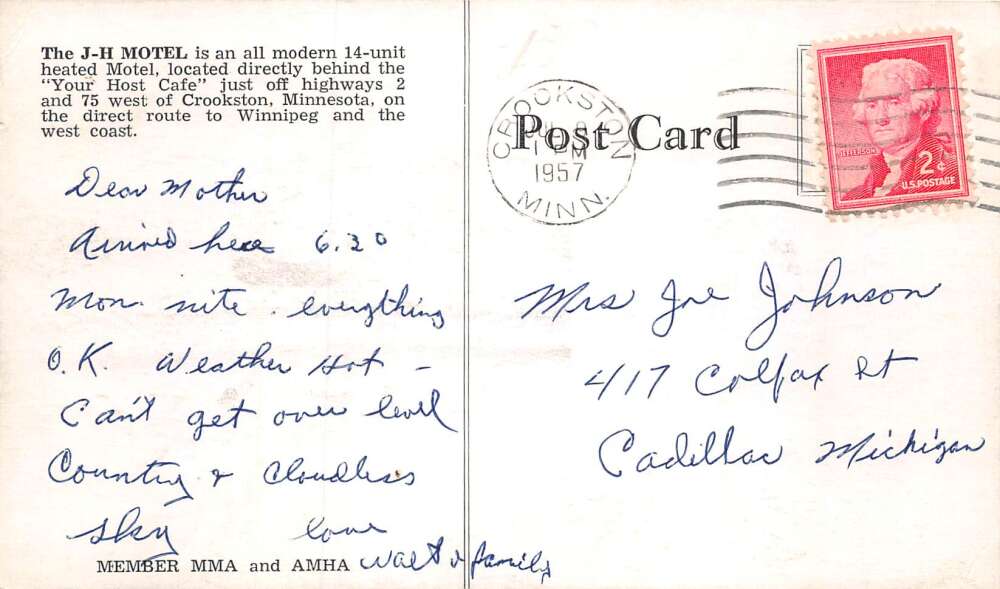 The J-H MOTEL is an all modern 14-unit
heated Motel, located directly behind the
"Your Host Cafe" just off highways 2
and 75 west of Crookston, Minnesota, on
the direct route to Winnipeg and the
west coast.
Dear Mother
Arrived here 6.30
Mon. nite. everything
O.K. Weather Hot -
Can't get over level
Country & Cloudless
sky love
Walt & family
MEMBER MMA and AMHA
Post Card
CROOKSTON
PM
1957
MINN.
JEFFERSON
2¢
U.S. POSTAGE
Mrs Joe Johnson
417 Colfax St
Cadillac Michigan